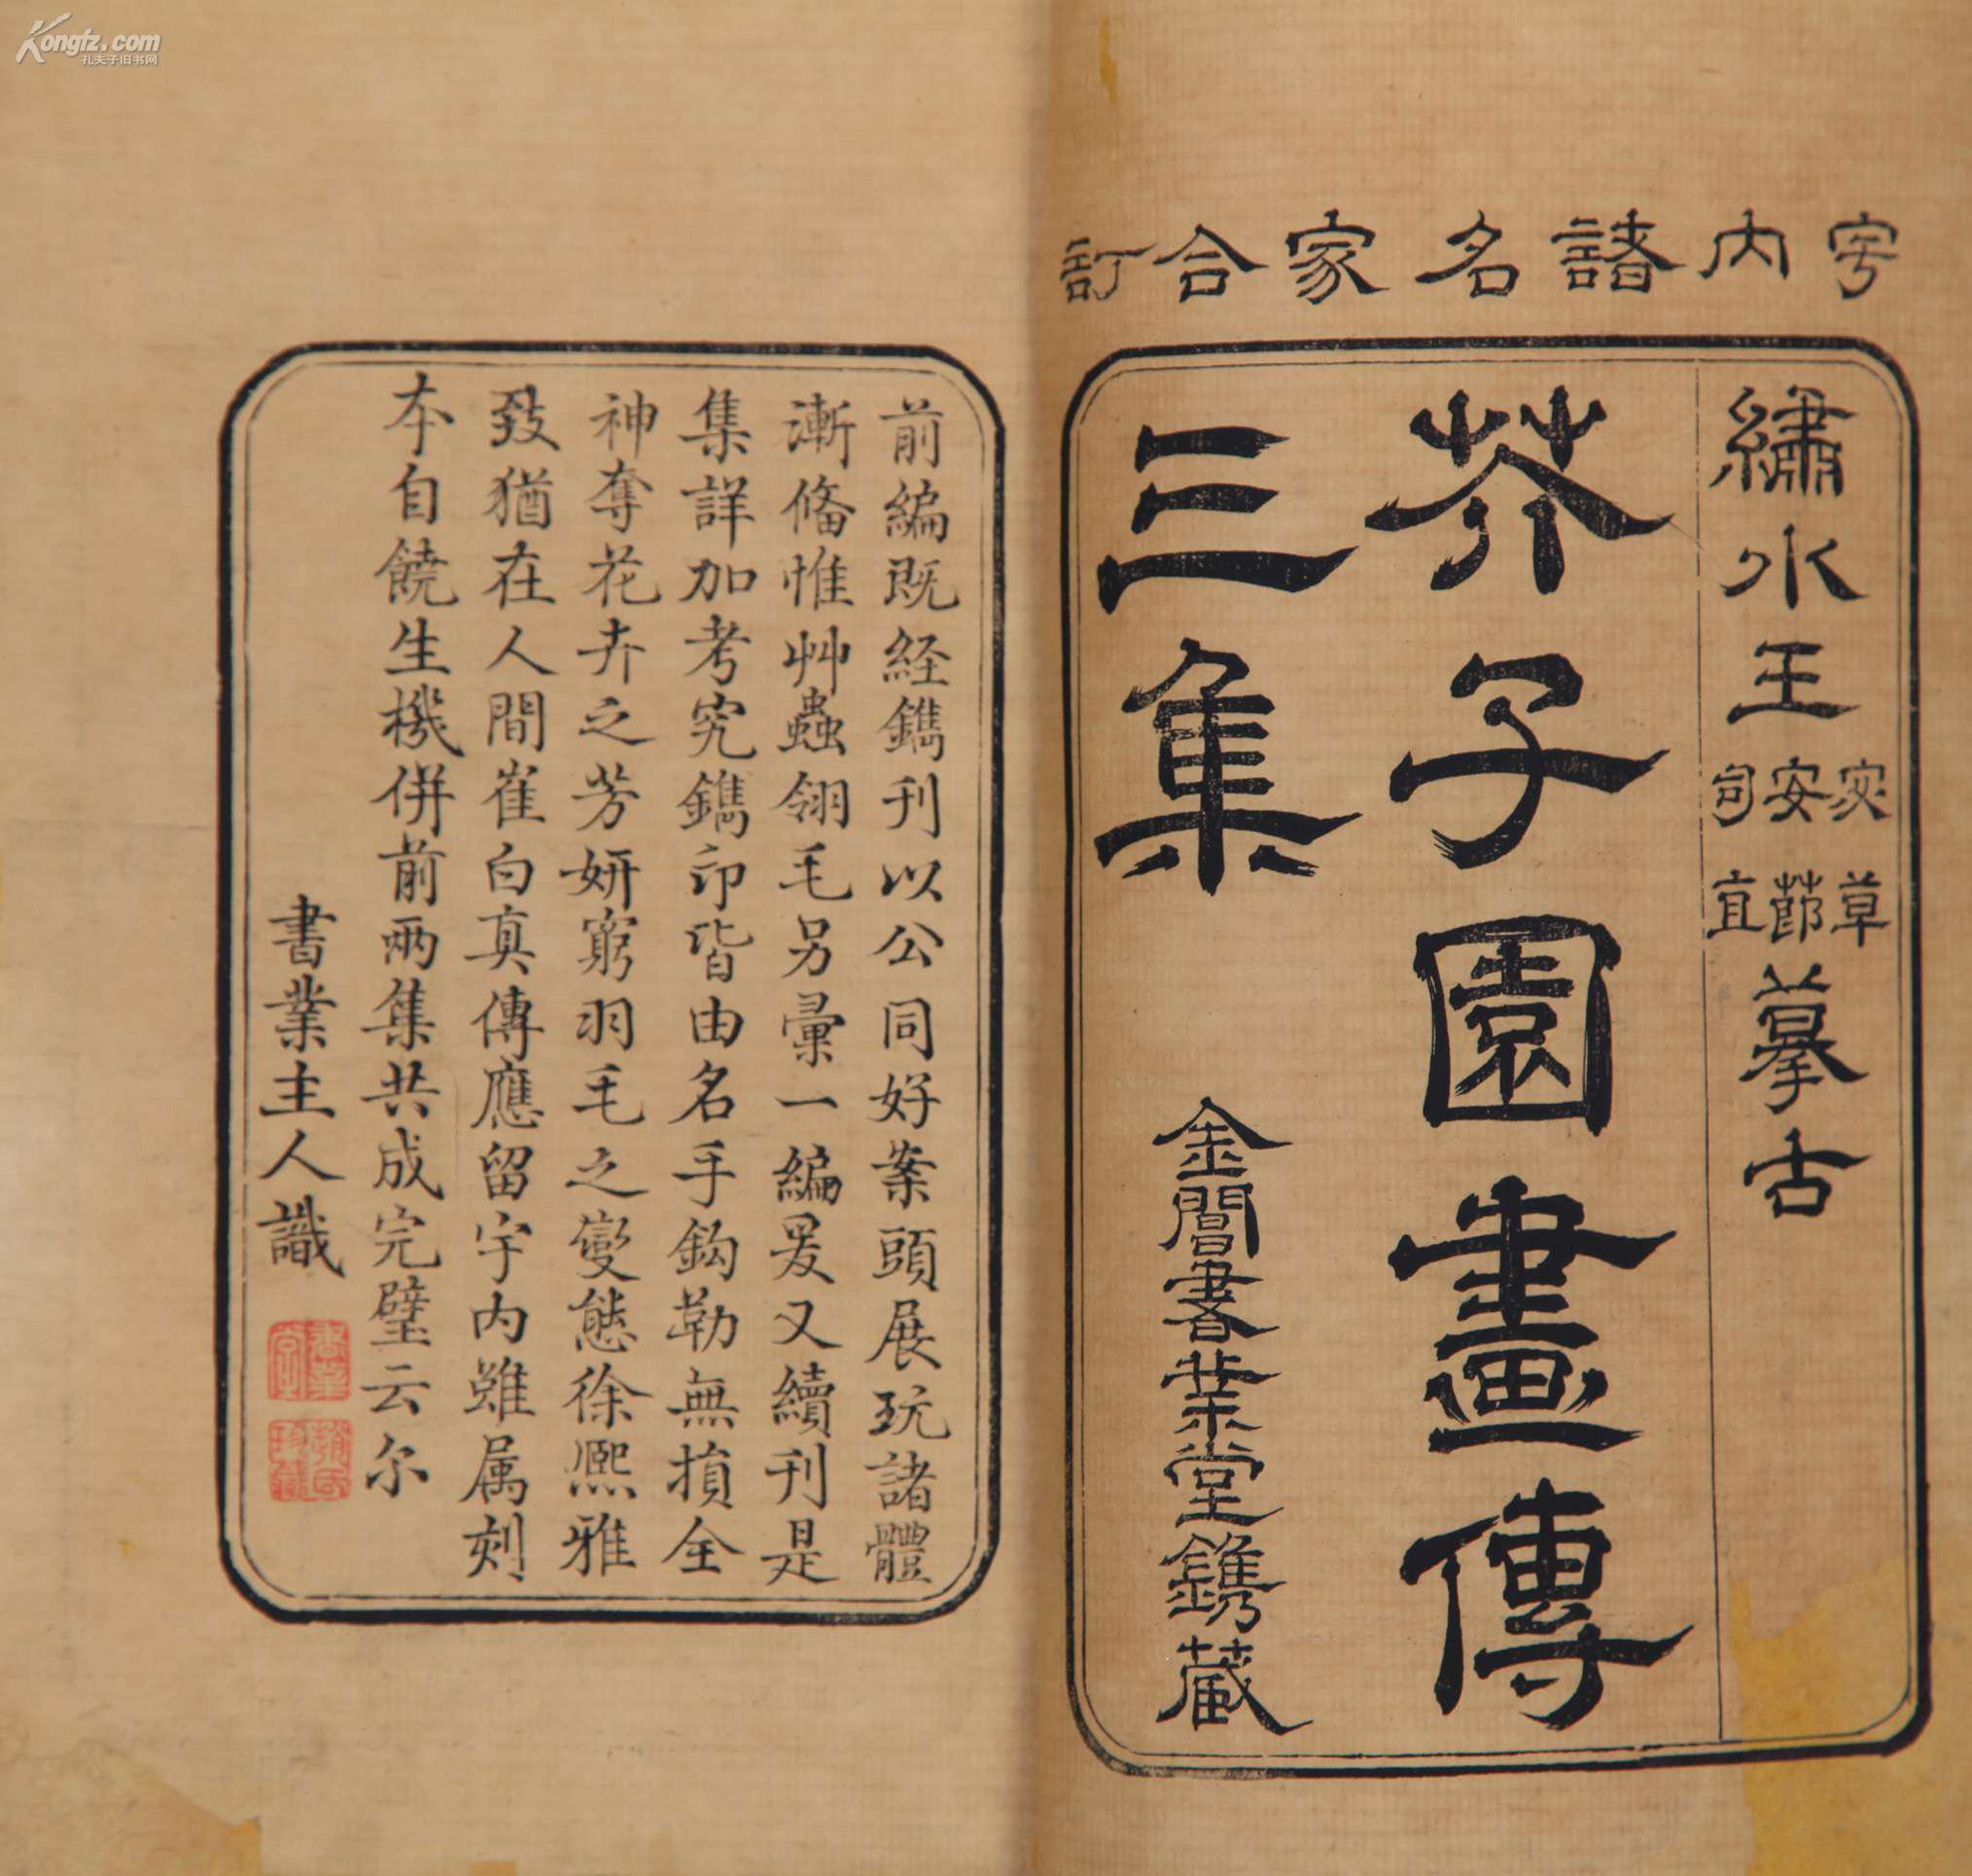 Kongfz.com
孔夫子旧书网
宇内諸名家合訂
繡水王宓草安節司直摹古
芥子園畫傳
三集
金閶書業堂鐫藏
前編既経鐫刊以公同好案頭展玩諸體
漸備惟艸蟲翎毛另彙一編爰又續刊是
集詳加考究鐫印皆由名手鈎勒無損全
神奪花卉之芳妍窮羽毛之變態徐熈雅
致猶在人間崔白真傳應留宇内雖属刻
本自饒生機併前兩集共成完璧云尔
書業主人識